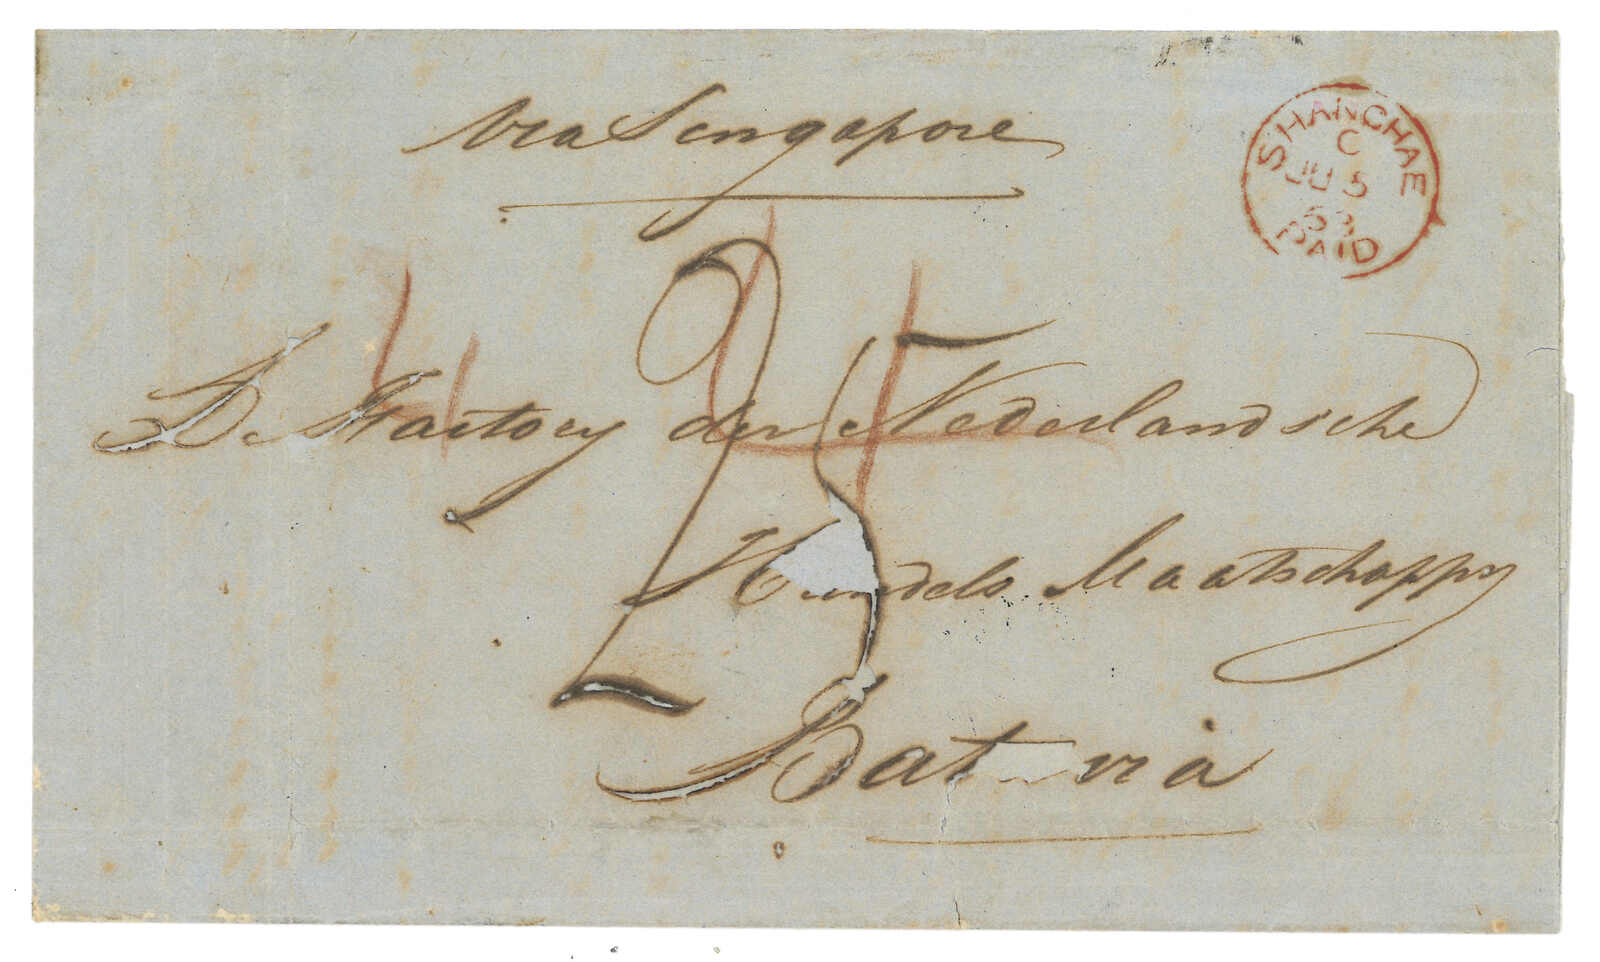 via Singapore
SHANGHAE
C
JU 5
63
PAID
25
De Factory der Nederlandsche
Handels Maatschappy
Batavia